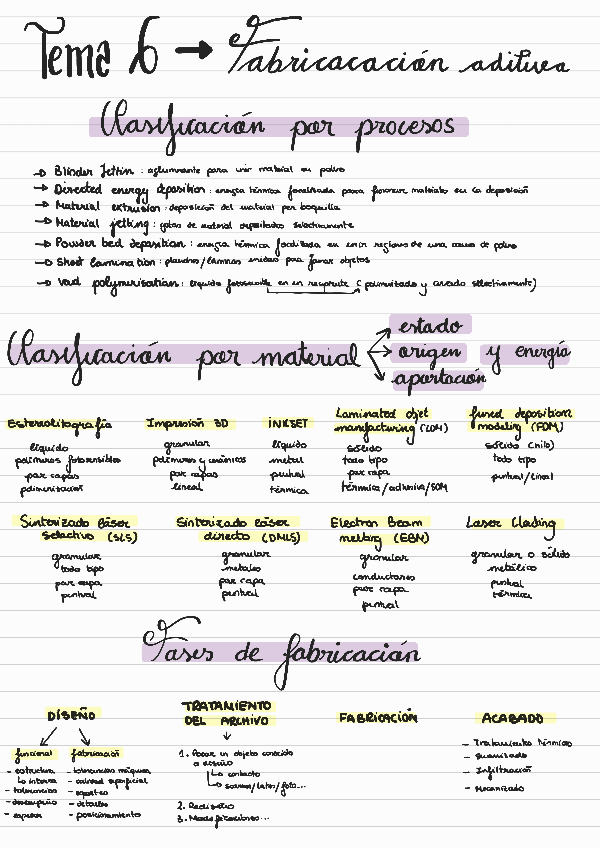 Tema 6 → Fabricacación aditiva
Clasificación por procesos
→ Blinder Jettin: aglumirante para unir material en polvo
→ Directed energy deposition: energía térmica focalizada para fusionar materiales en la deposición
→ Material extrusion: deposición del material por boquilla
→ Material jetting: gotas de material depositadas selectivamente
→ Powder bed deposition: energía térmica focalizada en unir regiones de una cama de polvo
→ Sheet lamination: planchas/láminas unidas para formar objetos
→ Vood polymerisation: líquido fotosensible en un recipiente (polimerizado y curado selectivamente)
Clasificación por material
estado
origen y energía
aportación
Estereolitografía Impresión 3D INKSET Laminated objet manfacturing (LOM) fused deposition modeling (FDM)
líquido granular líquido sólido sólido (hilo)
polímeros fotosensibles polímeros y cerámicos metal todo tipo todo tipo
por capas por capas puntual por capa puntual/lineal
polimerización lineal térmica térmica/adhesiva/SOM
Sinterizado láser selectivo (SLS) Sinterizado láser directo (DMLS) Electron Beam melting (EBM) Laser Clading
granular granular granular granular o sólido
todo tipo metales conductores metálico
por capa por capa por capa puntual
puntual puntual puntual térmica
Fases de fabricación
DISEÑO TRATAMIENTO DEL ARCHIVO FABRICACIÓN ACABADO
funcional fabricación
- estructura
La interna
- tolerancias
- desempeño
- espesor
- tolerancias máquina
- calidad superficial
- soportes
- detalles
- posicionamiento
1. Pasar un objeto conocido a diseño
↳ contacto
↳ scanner/laser/foto...
2. Rediseño
3. Modificaciones...
- Tratamiento térmico
- Suavizado
- Infiltración
- Mecanizado